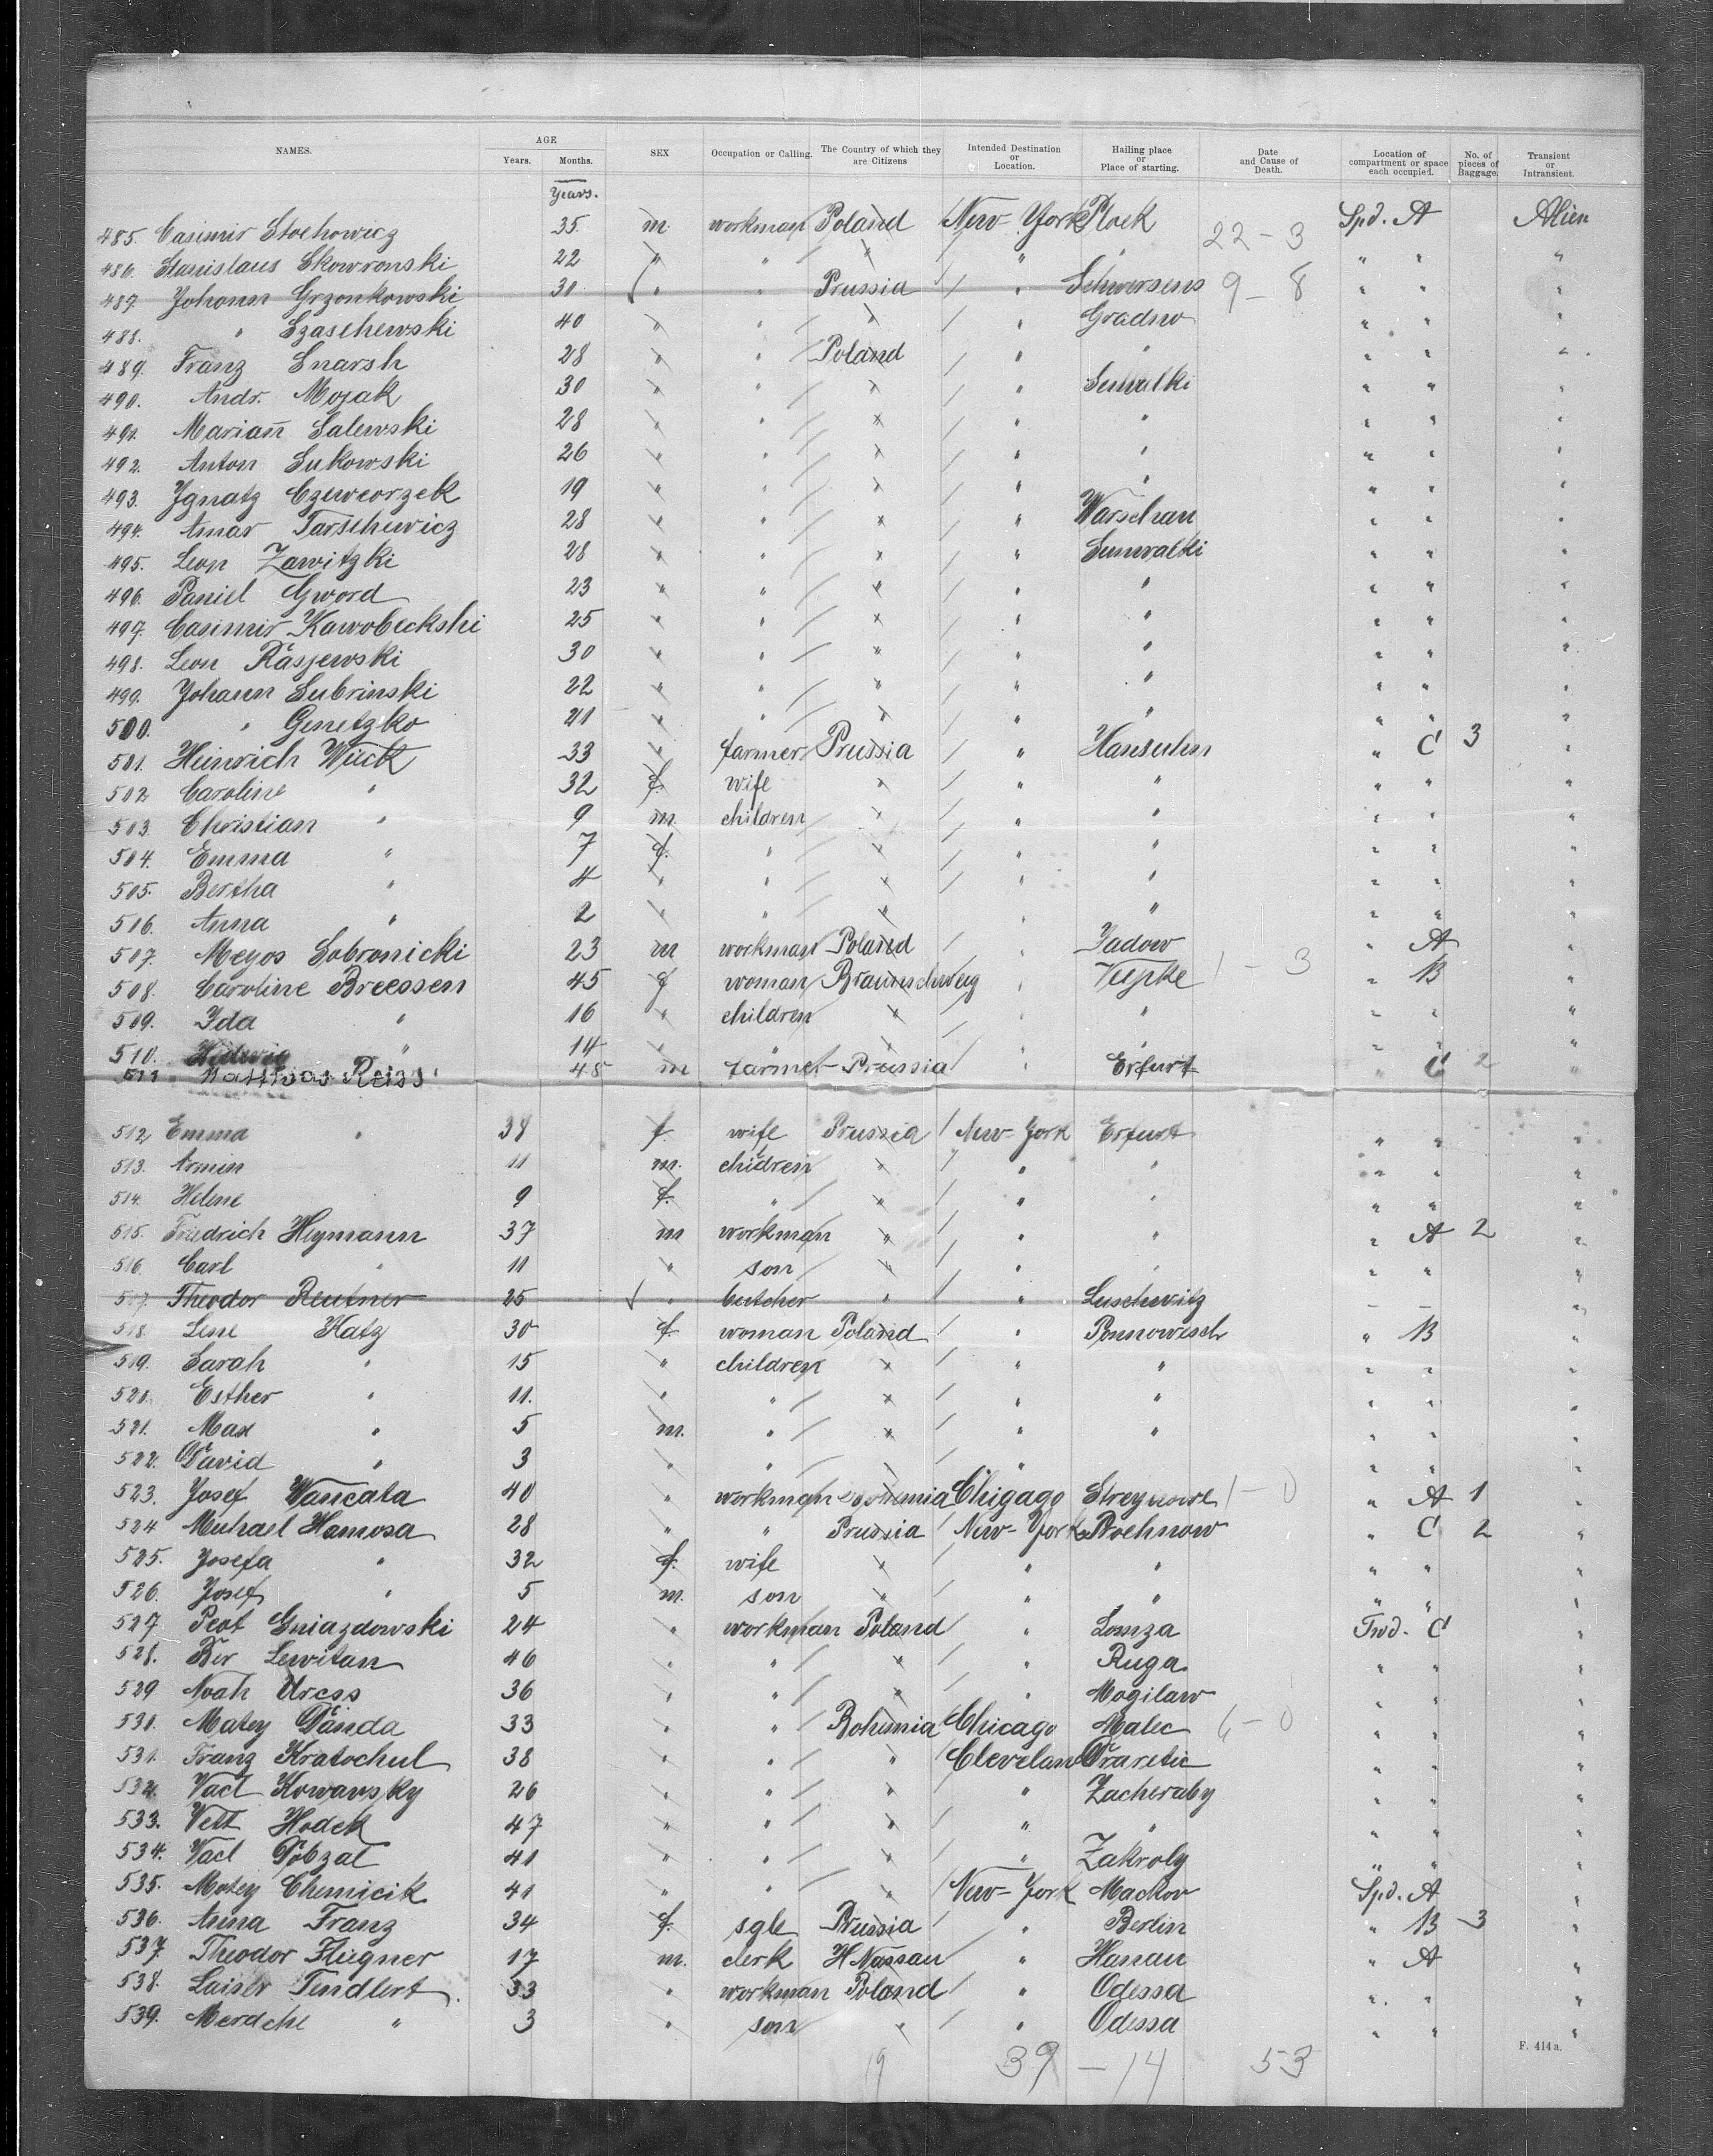 NAMES. AGE Years. Months. SEX Occupation or Calling. The Country of which they are Citizens Intended Destination or Location. Hailing place or Place of starting. Date and Cause of Death. Location of compartment or space each occupied. No. of pieces of Baggage. Transient or Intransient.
Years.
485. Casimir Stochowicz 35 m. workman Poland New-York Plock 22-3 Spd. A Alien
486. Stanislaus Skowronski 22 " " " " " " " "
487. Johann Grzonkowski 30 " " Prussia " Schwersens 9-8 " " "
488. " Szaschewski 40 " " " " Gradno " " "
489. Franz Snarsh 28 " " Poland " " " " "
490. Andr. Mojak 30 " " " " Suwalki " " "
491. Mariañ Salewski 28 " " " " " " " "
492. Anton Sukowski 26 " " " " " " " "
493. Ignatz Czeweorzek 19 " " " " " " " "
494. Amar Tarschewicz 28 " " " " Warschau " " "
495. Leon Zawitzki 28 " " " " Suwalki " " "
496. Daniel Gword 23 " " " " " " " "
497. Casimir Kawobeckshi 25 " " " " " " " "
498. Leon Räsjewski 30 " " " " " " " "
499. Johann Subrinski 22 " " " " " " " "
500. " Genetzko 21 " " " " " " " "
501. Heinrich Wück 33 " farmer Prussia " Hansuhn " C 3 "
502 Caroline " 32 f. wife " " " " " "
503. Christian " 9 m. children " " " " " "
504. Emma " 7 f. " " " " " " "
505. Bertha " 4 " " " " " " " "
506. Anna " 2 " " " " " " " "
507. Meyos Sobronicki 23 m workman Poland " Jadow " A "
508. Caroline Breessen 45 f woman Braunschweig " Velpke 1-3 " B "
509. Ida " 16 " children " " " " " "
510. Hedwig " 14 " " " " " " " "
511. Matthias Reiss 48 m farmer Prussia " Erfurt " C 2 "
512 Emma " 38 f. wife Prussia New-York Erfurt " " "
513. Armin 11 m. chidren " " " " " "
514. Helene 9 f. " " " " " " "
515. Friedrich Heymann 37 m workman " " " " A 2 "
516. Carl " 11 " son " " " " " "
517. Theodor Reutner 25 " butcher " " Luschwitz - - "
518. Lene Katz 30 f woman Poland " Ponnowesch " B "
519. Sarah " 15 " children " " " " " "
520. Esther " 11. " " " " " " " "
521. Max " 5 m. " " " " " " "
522. David " 3 " " " " " " "
523. Josef Vancata 40 " workman Bohemia Chigago 1-0 " A 1 "
524 Michael Hamosa 28 " " Prussia New-York Prochnow " C 2 "
525. Josefa " 32 f. wife " " " " " "
526. Josef " 5 m. son " " " " " "
527 Peot Gniazdowski 24 " workman Poland " Lomza Fwd. C "
528. Ber Lewitan 46 " " " " Ruga " " "
529 Noah Uress 36 " " " " Mogilaw " " "
530. Matey Dända 33 " " Bohemia Chicago Malec 6-0 " " "
531. Franz Kratochul 38 " " " Cleveland " " "
532. Vacl Kowarsky 26 " " " " Zacheraby " " "
533. Vett Hodek 47 " " " " " " " "
534. Vacl Pöbzal 41 " " " " Zakroly " " "
535. Motey Chemicik 41 " " " New-York Mackov Spd. A "
536. Anna Franz 34 f. sgle Prussia " Berlin " B 3 "
537 Theodor Flügner 17 m. clerk H Nassau " Hanau " A "
538. Laiser Tendlert. 33 " workman Poland " Odessa " " "
539. Merdche " 3 " son " " Odessa " " "
19 39-14 53
F. 414 a.